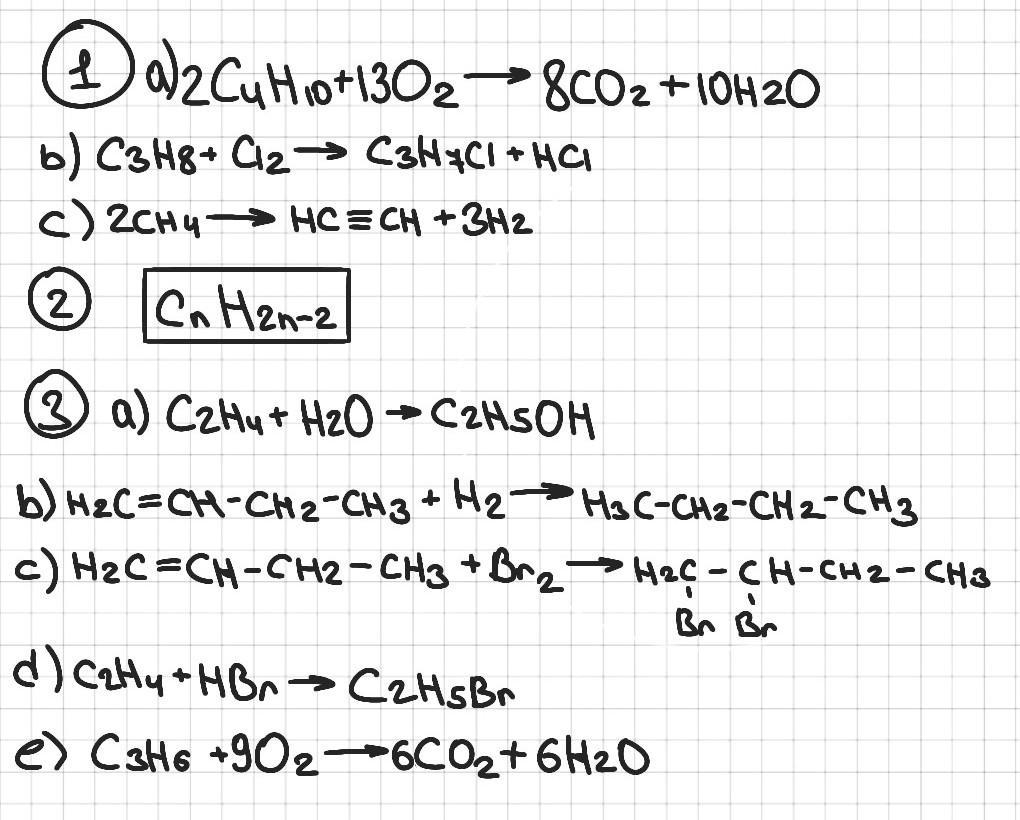 1 a) 2C4H10+13O2 → 8CO2+10H2O
b) C3H8+ Cl2 → C3H7Cl+HCl
c) 2CH4 → HC≡CH+3H2
2 CnH2n-2
3 a) C2H4+H2O → C2H5OH
b) H2C=CH-CH2-CH3+H2 → H3C-CH2-CH2-CH3
c) H2C=CH-CH2-CH3+Br2 → H2C-CH-CH2-CH3
Br Br
d) C2H4+HBr → C2H5Br
e) C3H6+9O2 → 6CO2+6H2O